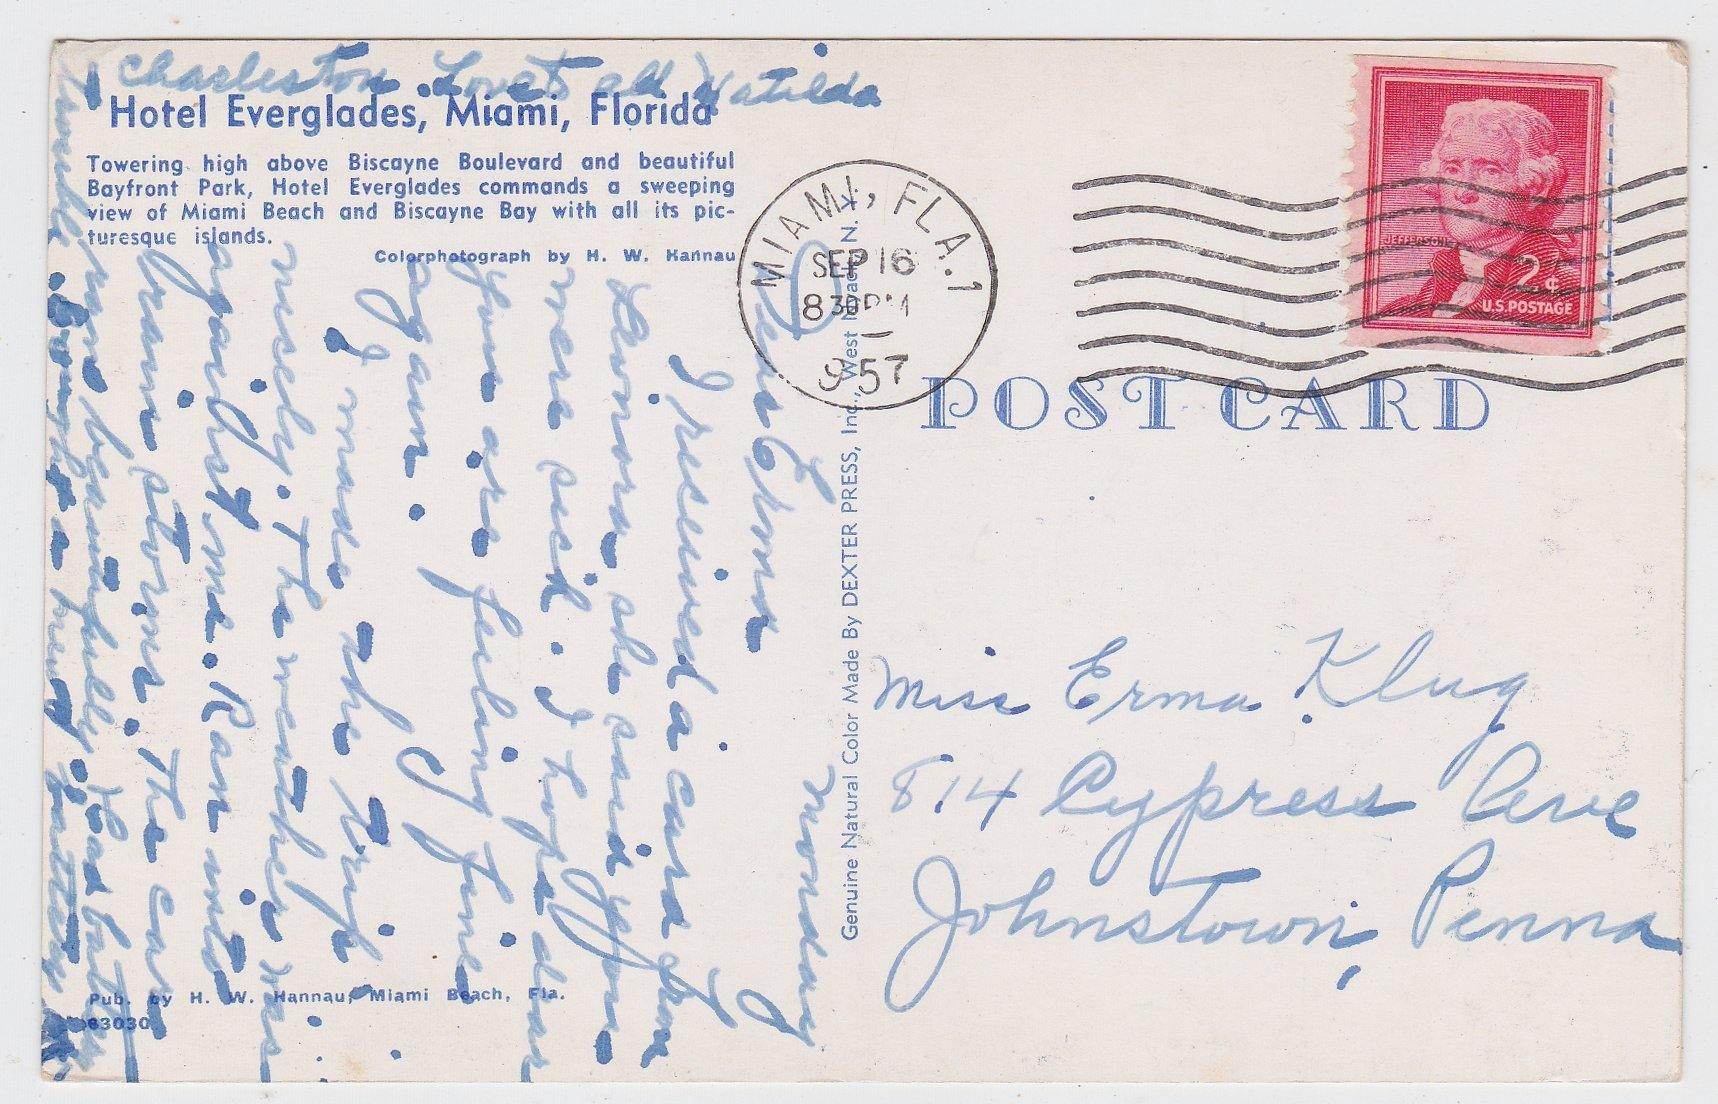 Hotel Everglades, Miami, Florida
Towering high above Biscayne Boulevard and beautiful
Bayfront Park, Hotel Everglades commands a sweeping
view of Miami Beach and Biscayne Bay with all its pic-
turesque islands.
Colorphotograph by H. W. Hannau
Monday
Dear Erma
I received a card from
Leinora she said you
were sick. I hope dear
you are feeling fine
again.
I made the trip
nicely. The weather was
against me. Ran into
rain storms. The car
ran beautifully. Had battery
trouble
Bought a new battery
Charleston. Love to all Matilda
Pub. by H. W. Hannau, Miami Beach, Fla.
63030
Genuine Natural Color Made By DEXTER PRESS, Inc., West Nyack, N. Y.
MIAMI, FLA. 1
SEP 16
830 PM
1957
JEFFERSON
2¢
U.S. POSTAGE
POST CARD
Miss Erma Klug
814 Cypress Ave
Johnstown, Penna